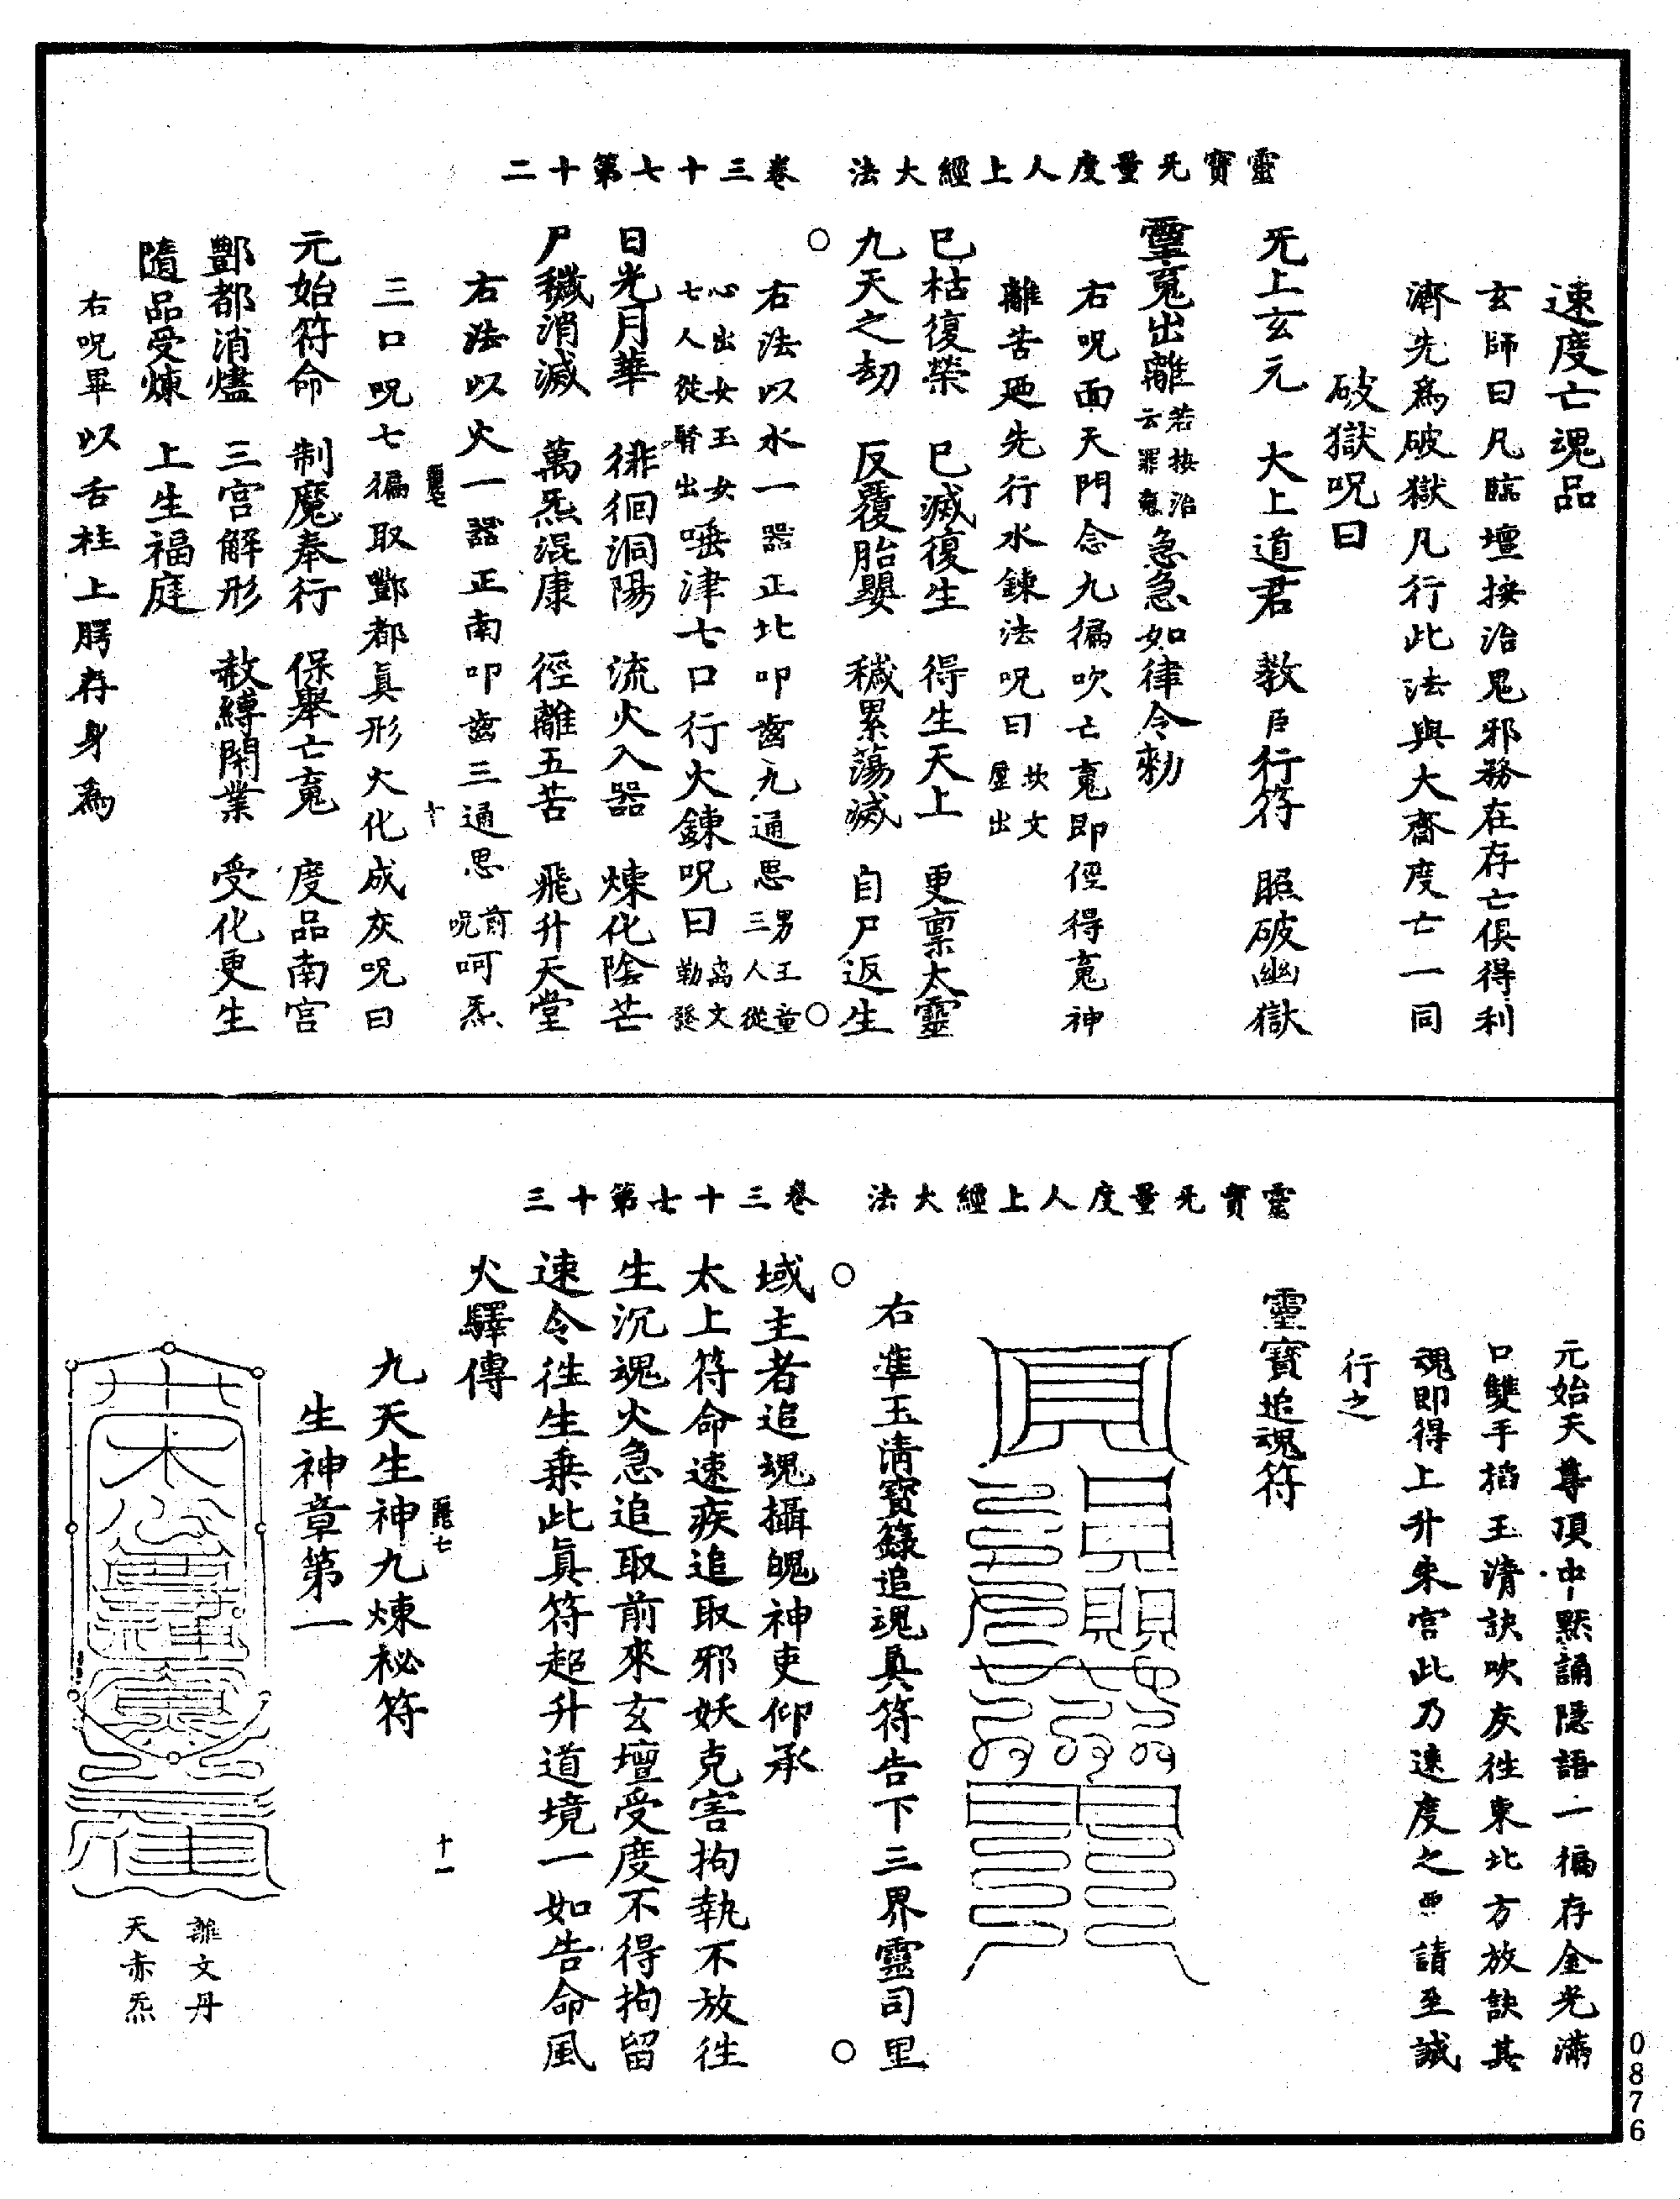 靈寶无量度人上經大法　卷三十七第十二
速度亡魂品
玄師曰凡臨壇按治鬼邪務在存亡俱得利
濟先爲破獄凡行此法與大齋度亡一同
破獄呪曰
无上玄元　大上道君　教臣行符　照破幽獄
靈䰟出離若按治云罪䰟急急如律令勑
右呪面天門念九徧吹亡䰟即徑得䰟神
離苦𢌞先行水鍊法呪曰坎文壂出
巳枯復榮　巳滅復生　得生天上　更禀太靈
九天之劫　反覆胎嬰　穢累蕩滅　自尸返生
右法以水一器正北叩齒九通思男王童三人從
心出女玉女七人從腎出唾津七口行火鍊呪曰离文勒發
日光月華　徘徊洞陽　流火入器　煉化陰芒
尸穢消滅　萬炁混康　徑離五苦　飛升天堂
右法以火一器正南叩齒三通思前呪呵炁
三口呪七徧取酆都眞形火化成灰呪曰
十
元始符命　制魔奉行　保舉亡䰟　度品南宮
酆都消燼　三宫解形　赦縛開業　受化更生
隨品受煉　上生福庭
右呪畢以舌柱上腭存身爲
靈寶无量度人上經大法　卷三十七第十三
元始天尊頂中黙誦隱語一徧存金光滿
口雙手掐玉清訣吹灰徃東北方放訣其
魂即得上升朱宫此乃速度之要請至誠
行之
靈寶追魂符
右準玉清寶籙追魂真符告下三界靈司里
域主者追魂攝魄神吏仰承
太上符命速疾追取邪妖克害拘執不放徃
生沉魂火急追取前來玄壇受度不得拘留
速令徃生乗此眞符超升道境一如告命風
火驛傳
十一
九天生神九煉祕符
生神章第一
離文丹
天赤炁
0876